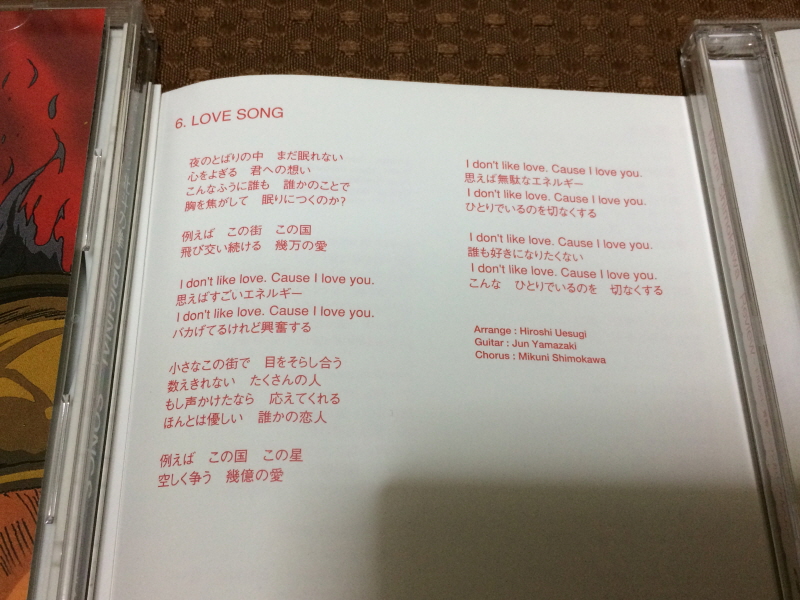 6. LOVE SONG
夜のとばりの中　まだ眠れない
心をよぎる　君への想い
こんなふうに誰も　誰かのことで
胸を焦がして　眠りにつくのか?
例えば　この街　この国
飛び交い続ける　幾万の愛
I don't like love. Cause I love you.
思えばすごいエネルギー
I don't like love. Cause I love you.
バカげてるけれど興奮する
小さなこの街で　目をそらし合う
数えきれない　たくさんの人
もし声かけたなら　応えてくれる
ほんとは優しい　誰かの恋人
例えば　この国　この星
空しく争う　幾億の愛
I don't like love. Cause I love you.
思えば無駄なエネルギー
I don't like love. Cause I love you.
ひとりでいるのを切なくする
I don't like love. Cause I love you.
誰も好きになりたくない
I don't like love. Cause I love you.
こんな　ひとりでいるのを　切なくする
Arrange : Hiroshi Uesugi
Guitar : Jun Yamazaki
Chorus : Mikuni Shimokawa